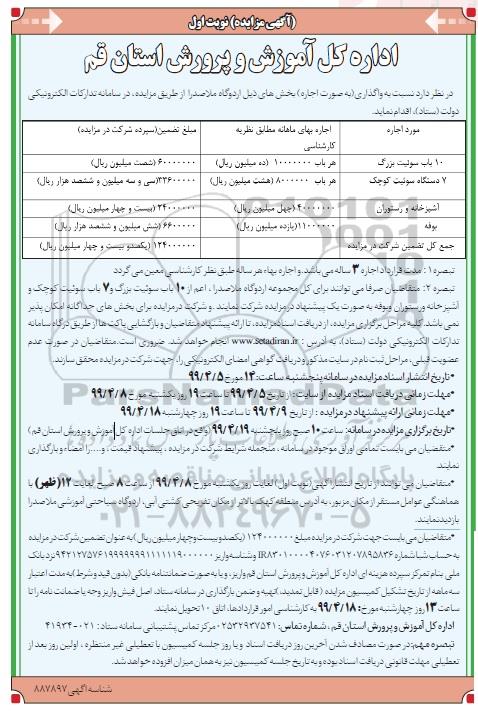 (آگهی مزایده) نوبت اول
اداره کل آموزش و پرورش استان قم
در نظر دارد نسبت به واگذاری (به صورت اجاره) بخش های ذیل اردوگاه ملاصدرا از طریق مزایده، در سامانه تدارکات الکترونیکی
دولت (ستاد)، اقدام نماید.
مورد اجاره اجاره بهای ماهانه مطابق نظریه کارشناسی مبلغ تضمین(سپرده شرکت در مزایده)
۱۰ باب سوئیت بزرگ هر باب ۱۰۰۰۰۰۰۰ (ده میلیون ریال) ۶۰۰۰۰۰۰۰ (شصت میلیون ریال)
۷ دستگاه سوئیت کوچک هر باب ۸۰۰۰۰۰۰ (هشت میلیون ریال) ۳۳۶۰۰۰۰۰(سی و سه میلیون و ششصد هزار ریال)
آشپزخانه و رستوران ۴۰۰۰۰۰۰۰(چهل میلیون ریال) ۲۴۰۰۰۰۰۰ (بیست و چهار میلیون ریال)
بوفه ۱۱۰۰۰۰۰۰(یازده میلیون ریال) ۶۶۰۰۰۰۰ (شش میلیون و ششصد هزار ریال)
جمع کل تضمین شرکت در مزایده ۱۲۴۰۰۰۰۰۰ (یکصدو بیست و چهار میلیون ریال)
تبصره ۱: مدت قرارداد اجاره ۳ ساله می باشد. و اجاره بهاء هر ساله طبق نظر کارشناسی معین می گردد
تبصره ۲: متقاضیان صرفا می توانند برای کل مجموعه اردوگاه ملاصدرا، اعم از ۱۰ باب سوئیت بزرگ و ۷ باب سوئیت کوچک و
آشپزخانه و رستوران و بوفه به صورت یک پیشنهاد در مزایده شرکت نمایند. و شرکت در مزایده برای بخش های جداگانه امکان پذیر
نمی باشد. کلیه مراحل برگزاری مزایده، از دریافت اسناد مزایده، تا ارائه پیشنهاد متقاضیان و بازگشایی پاکت ها از طریق درگاه سامانه
تدارکات الکترونیکی دولت (ستاد)، به آدرس: www.setadiran.ir انجام خواهد شد. ضروری است. متقاضیان در صورت عدم
عضویت قبلی، مراحل ثبت نام در سایت مذکور و دریافت گواهی امضای الکترونیکی را، جهت شرکت در مزایده محقق سازند.
•تاریخ انتشار اسناد مزایده در سامانه پنجشنبه ساعت: ۱۴ مورخ ۹۹/۴/۵
•مهلت زمانی دریافت اسناد مزایده از سایت: از تاریخ ۹۹/۴/۵ تا ساعت ۱۹ روز یکشنبه مورخ ۹۹/۴/۸
•مهلت زمانی ارائه پیشنهاد در مزایده : از تاریخ ۹۹/۴/۹ تا ساعت ۱۹ روز چهارشنبه ۹۹/۴/۱۸
•تاریخ برگزاری مزایده در سامانه: ساعت ۱۰ صبح روز پنجشنبه ۹۹/۴/۱۹ (واقع در اتاق جلسات اداره کل آموزش و پرورش استان قم)
•متقاضیان می بایست تمامی اوراق موجود در سامانه، منجمله شرایط شرکت در مزایده، پیشنهاد قیمت، و.... را امضاء و بارگذاری
نمایند.
•متقاضیان می توانند از تاریخ انتشار آگهی (نوبت اول) لغایت روز یکشنبه مورخ ۹۹/۴/۸ از ساعت ۸ صبح لغایت ۱۲(ظهر) با
هماهنگی عوامل مستقر از مکان مزبور، به آدرس منطقه کهک بالاتر از مکان تفریحی کشتی آبی، اردوگاه سیاحتی آموزشی ملاصدرا
بازدید نمایند.
•متقاضیان می بایست جهت شرکت در مزایده مبلغ ۱۲۴۰۰۰۰۰۰ (یکصد و بیست و چهار میلیون ریال) به عنوان تضمین شرکت در مزایده
به حساب شبا شماره IR۸۳۰۱۰۰۰۰۴۰۷۶۰۳۱۲۰۷۸۹۵۸۳۶ و شناسه واریز نزد بانک
ملی بنام تمرکز سپرده هزینه ای اداره کل آموزش و پرورش استان قم واریز، و یا به صورت ضمانتنامه بانکی (بدون قید و شرط) به مدت اعتبار
سه ماهه از تاریخ تشکیل کمیسیون مزایده (قابل تمدید)، تهیه و ضمن بارگذاری در سامانه ستاد، اصل فیش واریز وجه یا ضمانت نامه را تا
ساعت ۱۳ روز چهارشنبه مورخ: ۹۹/۴/۱۸ به کارشناسی امور قراردادها، اتاق ۱۰ تحویل نمایند.
اداره کل آموزش و پرورش استان قم، شماره تماس: ۰۲۵۳۲۹۳۷۵۴۱ مرکز تماس پشتیبانی سامانه ستاد: ۰۲۱-۴۱۹۳۴
تبصره مهم: در صورت مصادف شدن آخرین روز دریافت اسناد و یا روز جلسه کمیسیون با تعطیلی غیر منتظره، اولین روز بعد از
تعطیلی مهلت قانونی دریافت اسناد بوده و به تاریخ جلسه کمیسیون نیز به همان میزان افزوده خواهد شد.
شناسه آگهی ۸۸۷۸۹۷
پایگاه اطلاع رسانی مناقصه و مزایده
۰۲۱-۸۸۳۴۹۶۷۰-۵